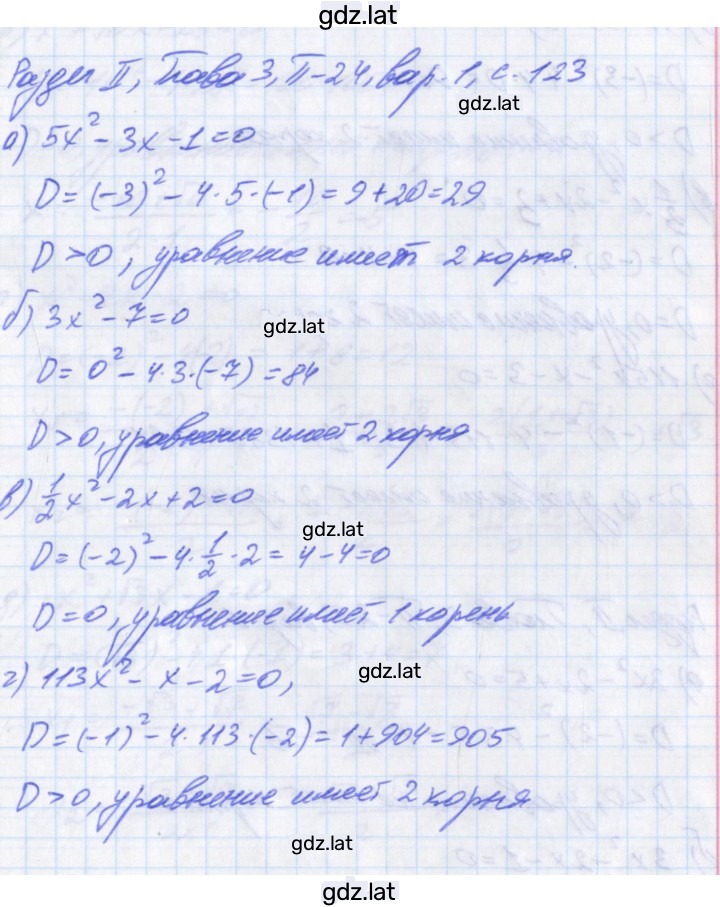 gdz.lat
Раздел II, Глава 3, П-24, вар. 1, с. 123
gdz.lat
а) 5x² - 3x - 1 = 0
D = (-3)² - 4·5·(-1) = 9 + 20 = 29
D > 0, уравнение имеет 2 корня.
б) 3x² - 7 = 0
gdz.lat
D = 0² - 4·3·(-7) = 84
D > 0, уравнение имеет 2 корня
в) 1/2 x² - 2x + 2 = 0
gdz.lat
D = (-2)² - 4·1/2·2 = 4 - 4 = 0
D = 0, уравнение имеет 1 корень
г) 113x² - x - 2 = 0,
gdz.lat
D = (-1)² - 4·113·(-2) = 1 + 904 = 905
D > 0, уравнение имеет 2 корня
gdz.lat
gdz.lat